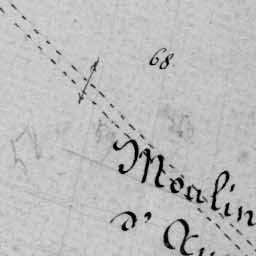 68
Moulin
d'